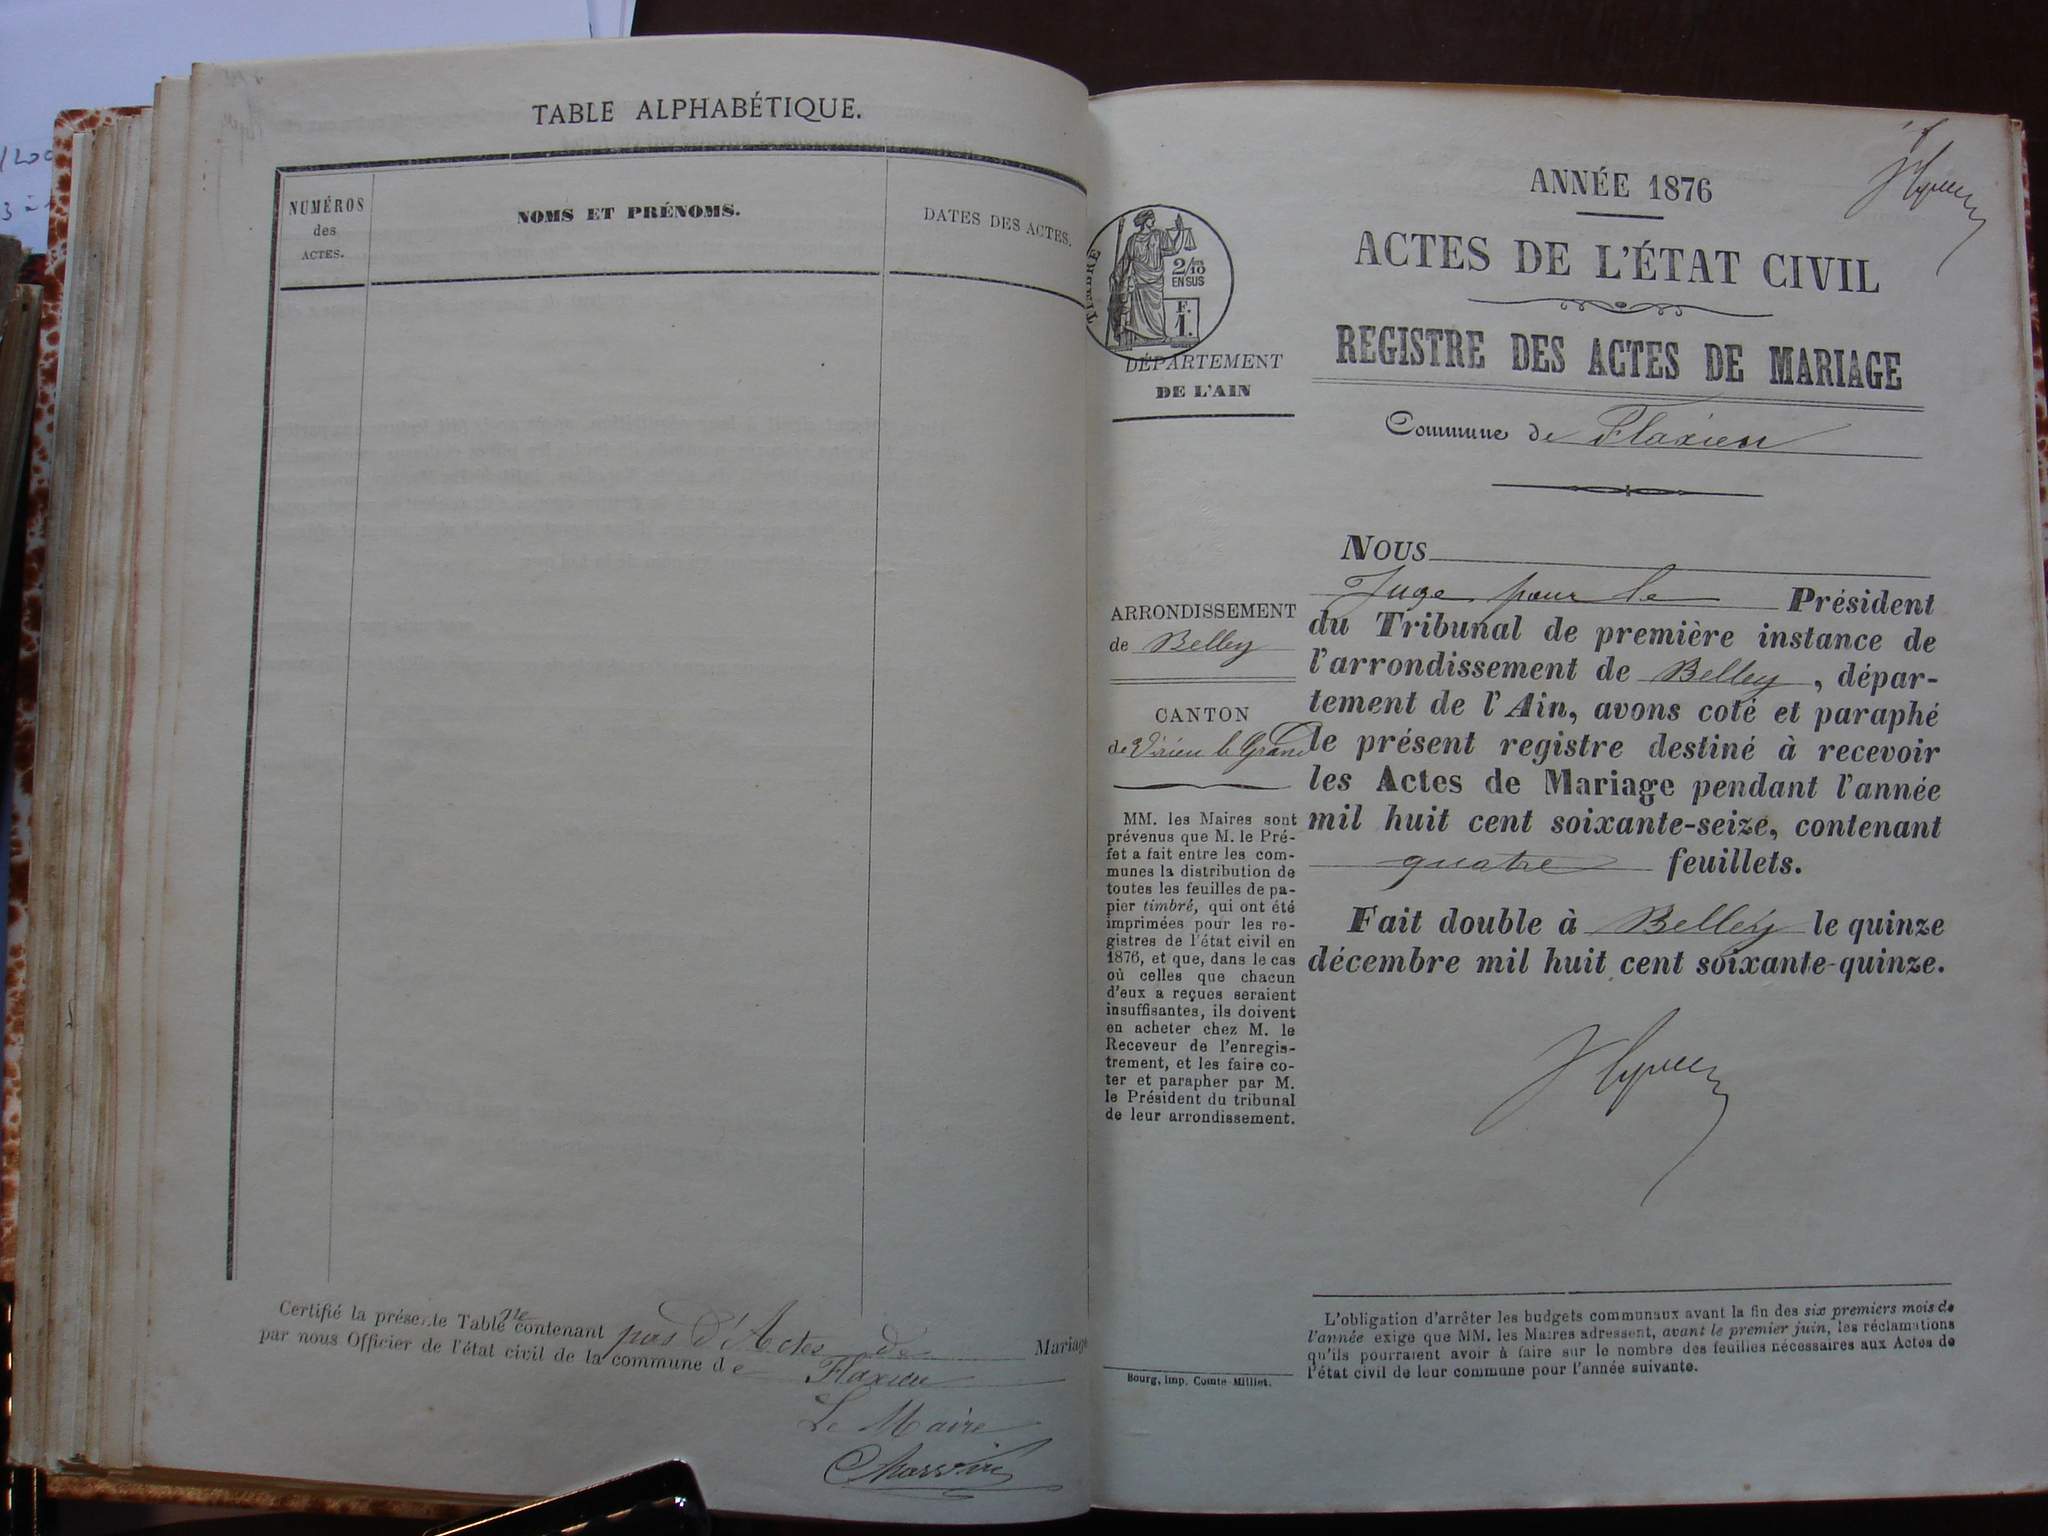 TABLE ALPHABÉTIQUE.
NUMÉROS
des
ACTES.
NOMS ET PRÉNOMS.
DATES DES ACTES.
Certifié la présente Table ne contenant pas d'Actes de Mariage
par nous Officier de l'état civil de la commune de Flaxieu
Le Maire
TIMBRE
2/10
EN SUS
F.
1.
DÉPARTEMENT
DE L'AIN
ARRONDISSEMENT
de Belley
CANTON
de Virieu le Grand
MM. les Maires sont
prévenus que M. le Pré-
fet a fait entre les com-
munes la distribution de
toutes les feuilles de pa-
pier timbré, qui ont été
imprimées pour les re-
gistres de l'état civil en
1876, et que, dans le cas
où celles que chacun
d'eux a reçues seraient
insuffisantes, ils doivent
en acheter chez M. le
Receveur de l'enregis-
trement, et les faire co-
ter et parapher par M.
le Président du tribunal
de leur arrondissement.
Bourg, imp. Comte-Milliet.
ANNÉE 1876
ACTES DE L'ÉTAT CIVIL
REGISTRE DES ACTES DE MARIAGE
Commune de Flaxieu
NOUS
Juge pour le Président
du Tribunal de première instance de
l'arrondissement de Belley, dépar-
tement de l'Ain, avons coté et paraphé
le présent registre destiné à recevoir
les Actes de Mariage pendant l'année
mil huit cent soixante-seize, contenant
quatre feuillets.
Fait double à Belley le quinze
décembre mil huit cent soixante-quinze.
L'obligation d'arrêter les budgets communaux avant la fin des six premiers mois de
l'année exige que MM. les Maires adressent, avant le premier juin, les réclamations
qu'ils pourraient avoir à faire sur le nombre des feuilles nécessaires aux Actes de
l'état civil de leur commune pour l'année suivante.